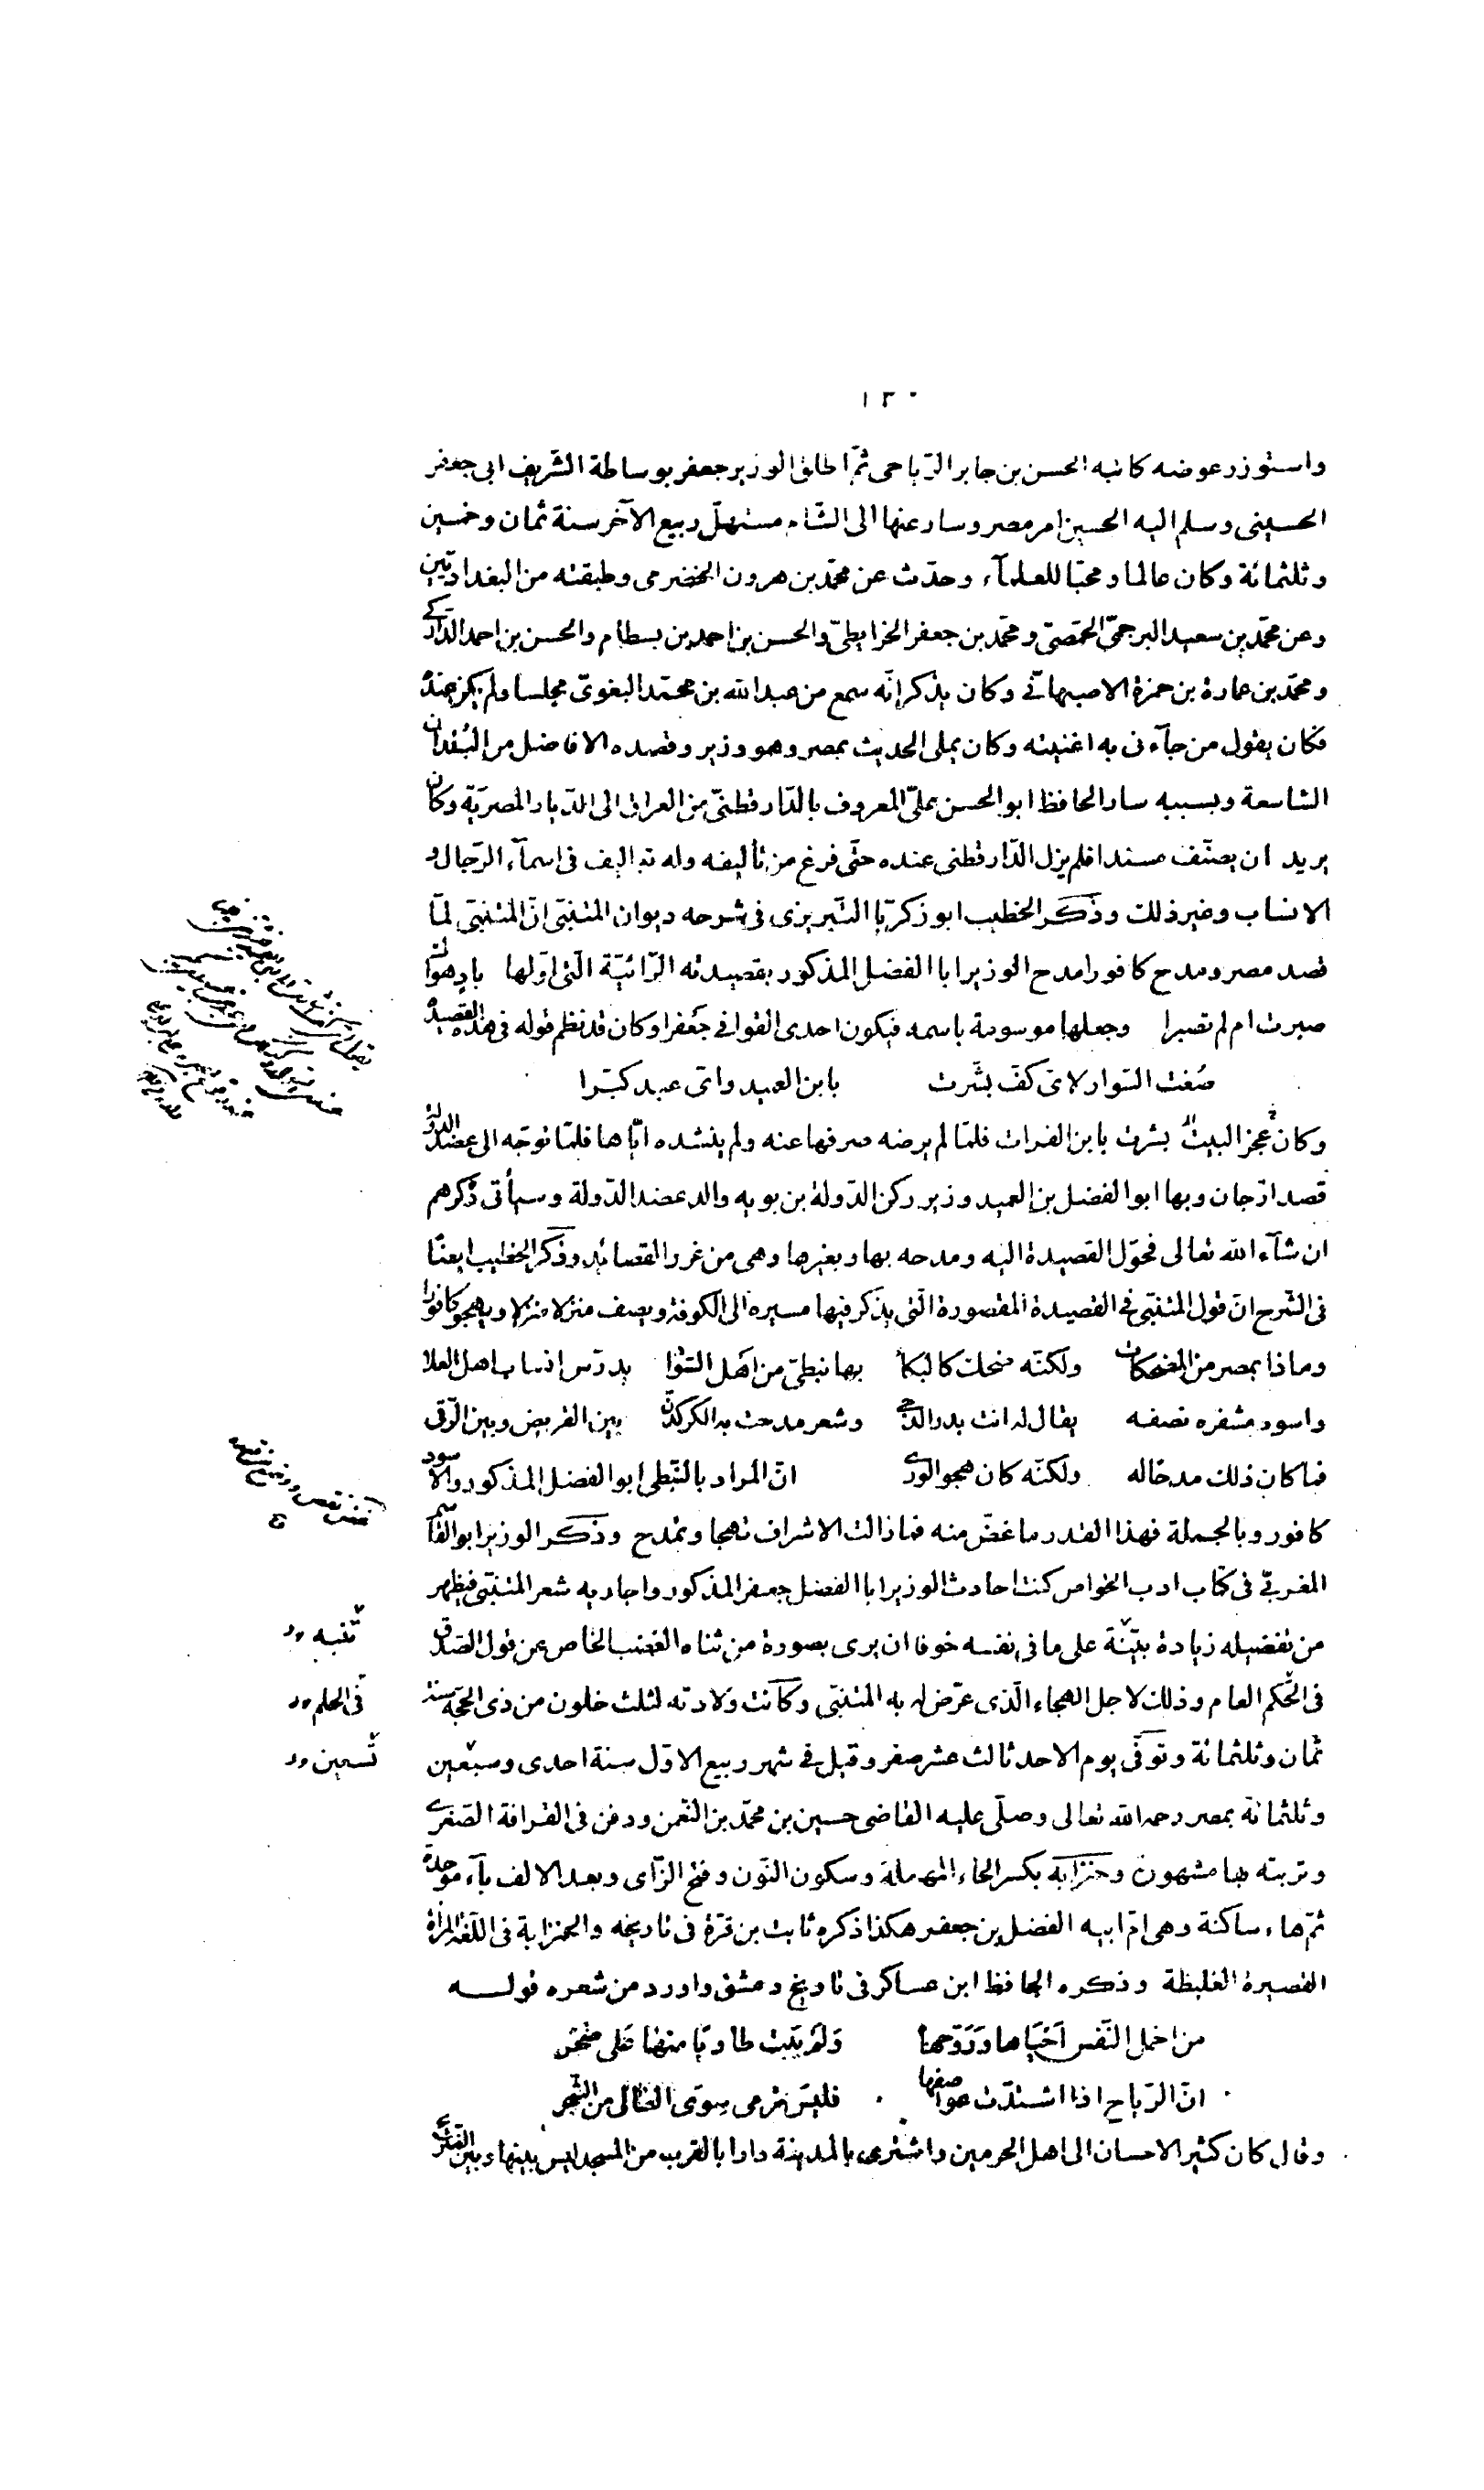 ١٣٠
واستوزر عوضه كاتبه الحسن بن جابر الرّياحى ثمّ اطلق الوزير جعفر بوساطة الشّريف ابى جعفر
الحسينى وسلم اليه الحسين امر مصر وسار عنها الى الشّام مستهلّ ربيع الآخر سنة ثمان وخمسين
وثلثمائة وكان عالما ومحبّا للعلمآء وحدّث عن محمّد بن هرون الحضرمى وطبقته من البغداديّين
وعن محمّد بن سعيد البرجمىّ الحمصىّ ومحمّد بن جعفر الخرايطىّ والحسن بن احمد بن بسطام والحسن بن احمد الدّاركى
ومحمّد بن عمارة بن حمزة الاصبهانّى وكان يذكر انّه سمع من عبد الله بن محمّد البغوىّ مجلسا ولم يكن عنده
فكان يقول من جآءنى به اغنيته وكان يملى الحديث بمصر وهو وزير وقصده الافاضل من البلدان
الشاسعة وبسببه سار الحافظ ابو الحسن علىّ المعروف بالدّارقطنىّ من العراق الى الدّيار المصريّة وكان
يريد ان يصنّف مسندا فلم يزل الدّارقطنى عنده حتّى فرغ من تأليفه وله تواليف فى اسمآء الرّجال و
الانساب وغير ذلك وذكر الخطيب ابو زكريّا التّبريزى فى شرحه ديوان المتنبّى انّ المتنبّى لمّا
قصد مصر ومدح كافورا مدح الوزير ابا الفضل المذكور بقصيدته الرّائيّة الّتى اوّلها بادٍ هواك
صبرت ام لم تصبرا وجعلها موسومة باسمه فيكون احدى القوافى جعفرا وكان قد نظم قوله فى هذه القصيدة
صُغت السّوار لاىّ كفّ بشّرت بابن العميد واىّ عبد كبّرا
وكان عجز البيت بشرت بابن الفرات فلمّا لم يرضه صرفها عنه ولم ينشده ايّاها فلمّا توجّه الى عضد الدولة
قصد ارّجان وبها ابو الفضل بن العميد وزير ركن الدّولة بن بويه والد عضد الدّولة وسيأتى ذكرهم
ان شآء الله تعالى فحوّل القصيدة اليه ومدحه بها وبغيرها وهى من غرر القصائد وذكر الخطيب ايضًا
فى الشّرح انّ قول المتنبّى فى القصيدة المقصورة الّتى يذكر فيها مسيره الى الكوفة ويصف منزلا منزلا ويهجو كافورا
وماذا بمصر من المضحكات ولكنّه ضحك كالبكا بها نبطىّ من اهل السّوا يدرّس انساب اهل العلا
واسود مشفره نصفه يقال له انت بدر الدّجى وشعر مدحت به الكركدّن بين القريض وبين الرّقى
فما كان ذلك مدحًا له ولكنّه كان هجو الورى انّ المراد بالنّبطى ابو الفضل المذكور والاسود
كافور وبالجملة فهذا القدر ما غضّ منه فما زالت الاشراف تهجا وتمدح وذكر الوزير ابو القاسم
المغربّى فى كتاب ادب الخواص كنت احادث الوزير ابا الفضل جعفر المذكور واجاريه شعر المتنبّى فيظهر
من تفضيله زيادة بيّنة على ما فى نفسه خوفا ان يرى بصورة من ثناه الغضب الخاص عن قول الصّدق
تنبه
فى الحكم العام وذلك لاجل الهجاء الّذى عرّض له به المتنبّى وكانت ولادته لثلث خلون من ذى الحجّة سنة
فى الحلم
ثمان وثلثمائة وتوفّى يوم الاحد ثالث عشر صفر وقيل فى شهر ربيع الاوّل سنة احدى وسبعين
تسعين
وثلثمائة بمصر رحمه الله تعالى وصلّى عليه القاضى حسين بن محمّد بن النّعمن ودفن فى القرافة الصّغرى
وتربته بها مشهورة وحنزابه بكسر الحاء المهملة وسكون النّون وفتح الزّاى وبعد الالف بآء موحدة
ثمّ هاء ساكنة وهى امّ ابيه الفضل بن جعفر هكذا ذكره ثابت بن قرّة فى تاريخه والحنزابة فى اللّغة المرأة
القصيرة الغليظة وذكره الحافظ ابن عساكر فى تاريخ دمشق واورد من شعره قوله
من اخمل النّفس اَحْيَاها ورَوّحها وَلَم يَبِت طاويًا منها عَلى ضجر
انّ الرّياح اذا اشتدّت عواصفها فليسَ ترمى سِوَى العَالى من الشّجر
وقال كان كثير الاحسان الى اهل الحرمين واشترى بالمدينة دارا بالقرب من المسجد ليس بينها وبين